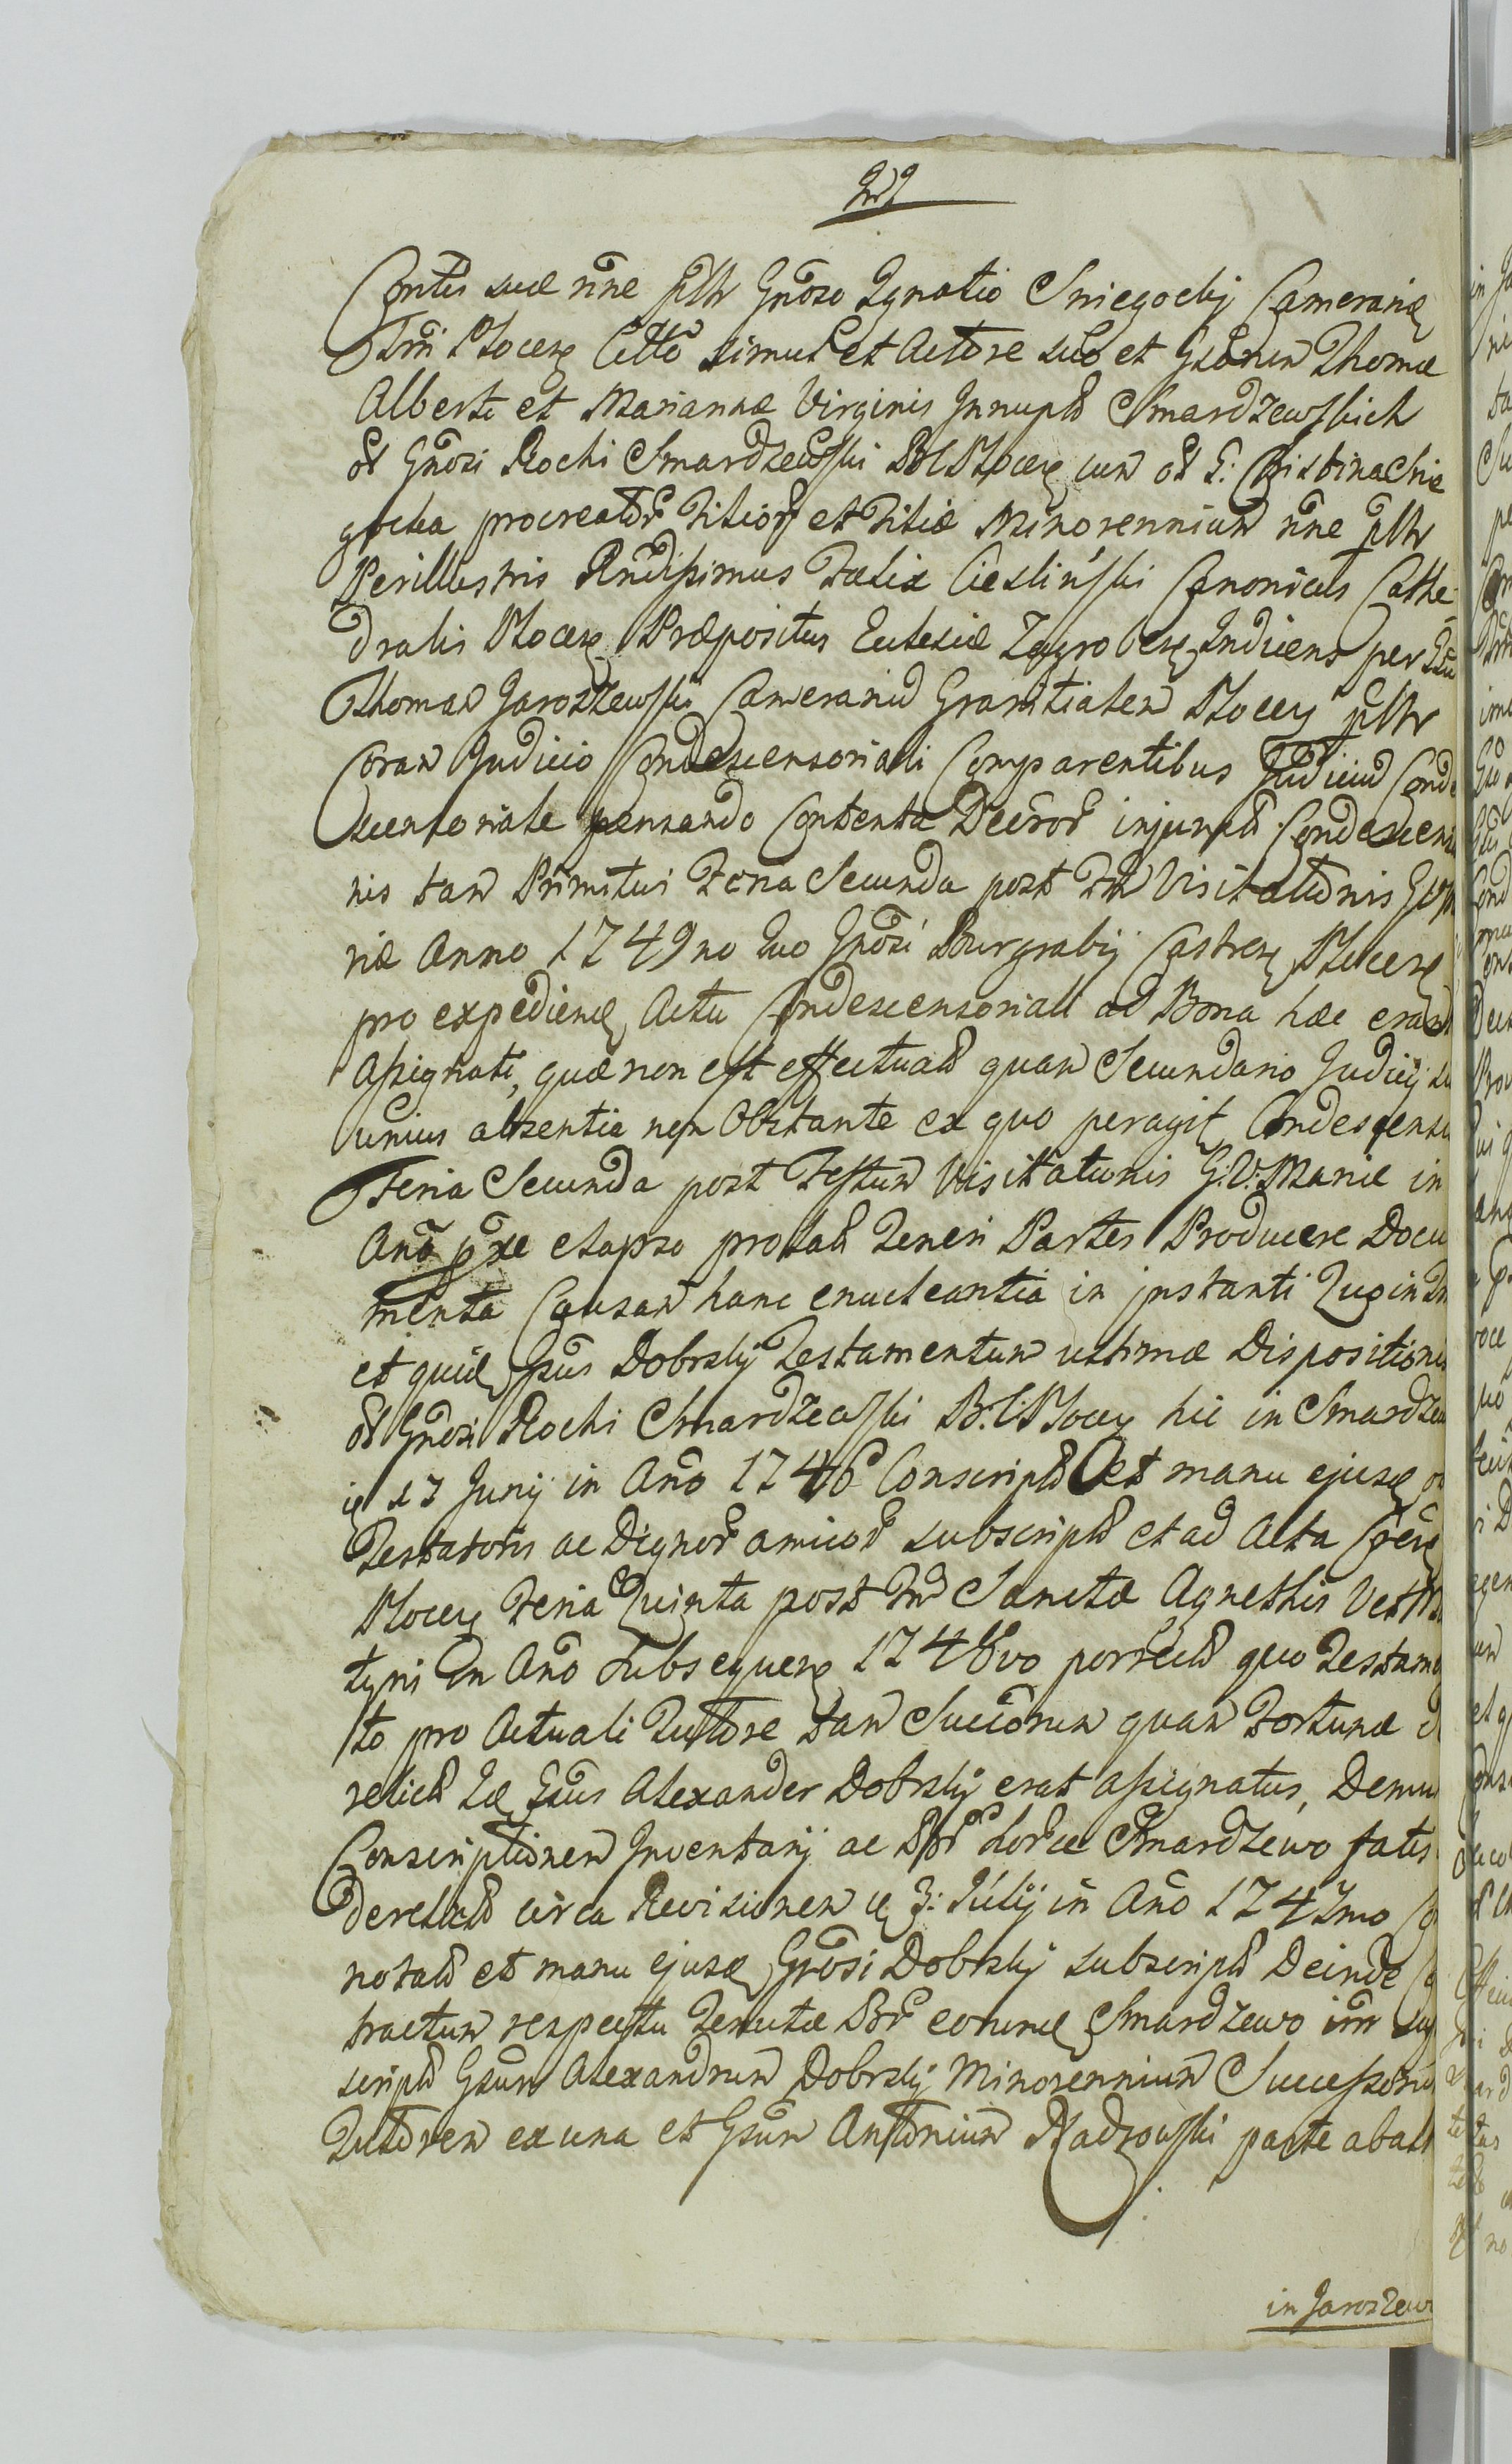 Contis suæ nne pltr Gnoso Ignatio Sniegocky Camerariæ
Trni Plocen Citto simul et Actore suo et Gsorum Thomæ
Alberti et Mariannæ Virginis Innuptæ Smardzewskich
ol Gnosi Rochi Smardzewski BC Plocen cum ol G: Christina Snie
gocka procreator Filior et Filiæ Minorennium nne pltr
Perillustris Rndissimus Felix Cieslinski Canonicus Cathe
dralis Plocen Præpositus Eclesiæ Zagroben Indicens per
Thomam Jaroszewski Camerarium Granitialem Plocen pltr
Coram Judicio Condescensoriali Comparentibus Judicium Conde
scensoriale pensando Contenta Decror injunctæ Condescensio
nis tam Primitus Feria Secunda post Ftm Visitationis
riæ Anno 1749no Quo Gnosi Burgrabij Castren Plocen
pro expedien Actu Condescensoriali ad Bona hæc erant
Assignati, quæ non est effectuata quam Secundario Judicij
unius absentia non Obstante ex quo peragit Condescensu
Feria Secunda post Festum Visitationis G:V: Mariæ in
Ano pxe elapso probata Teneri Partes Producere Docu
menta Causam hanc enucleantia in instanti
et quidem Gsus Dobrsky Testamentum ultimæ Dispositionis
ol Gnosi Rochi Smardzewski B.C. Plocen hic in Smardzew
17 Junij in Ano 1746 Conscriptum et manu ejusd
Testatoris ac Dignor amicor subscriptum et ad Acta
Plocen Feria Quinta post Ftm Sanctæ Agnethis Vet
tyris In Ano Subsequen 1748vo porrectum quo Testamen
to pro Actuali Tutore tam Succorum quam Fortunæ
relictæ Gsus Alexander Dobrsky erat assignatus, Demum
Conscriptionem Inventarij ac Smardzewo fatis
derelict circa Revisionem 3: Julij in Ano 1747mo
notatum et manu ejusd Gnosi Dobrsky subscriptum Deinde
tractum respectu Tenutæ Br eorund Smardzewo
script Gsum Alexandrum Dobrsky Minorennium Successorum
Tutorem ex una et Gsum Antonium Radzowski parte ab
in Jaroszew